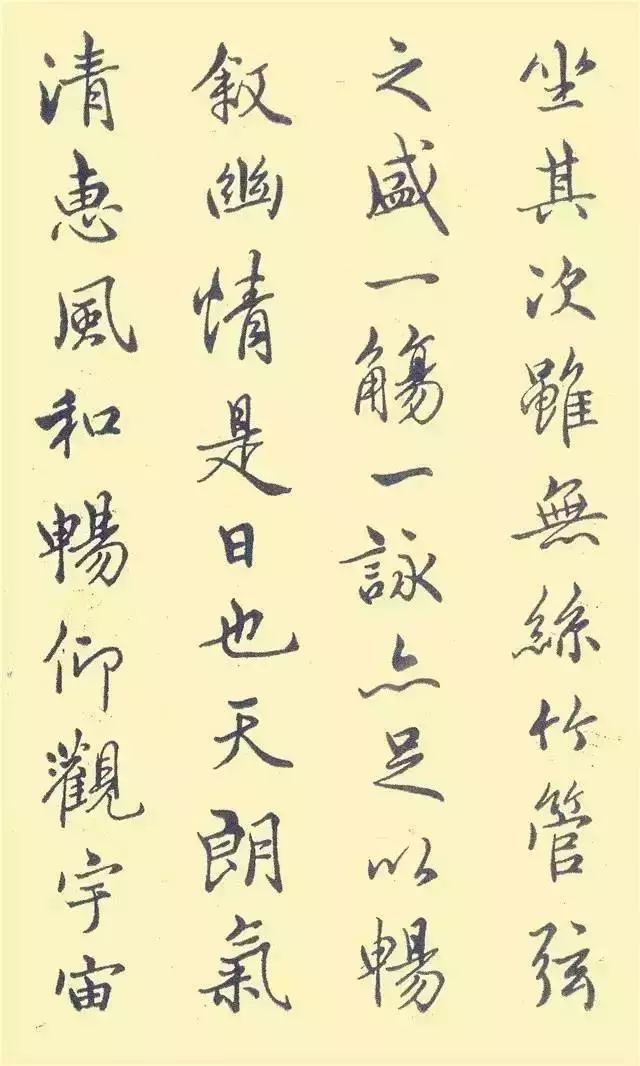 坐其次雖無絲竹管弦
之盛一觴一詠亦足以暢
敘幽情是日也天朗氣
清惠風和暢仰觀宇宙